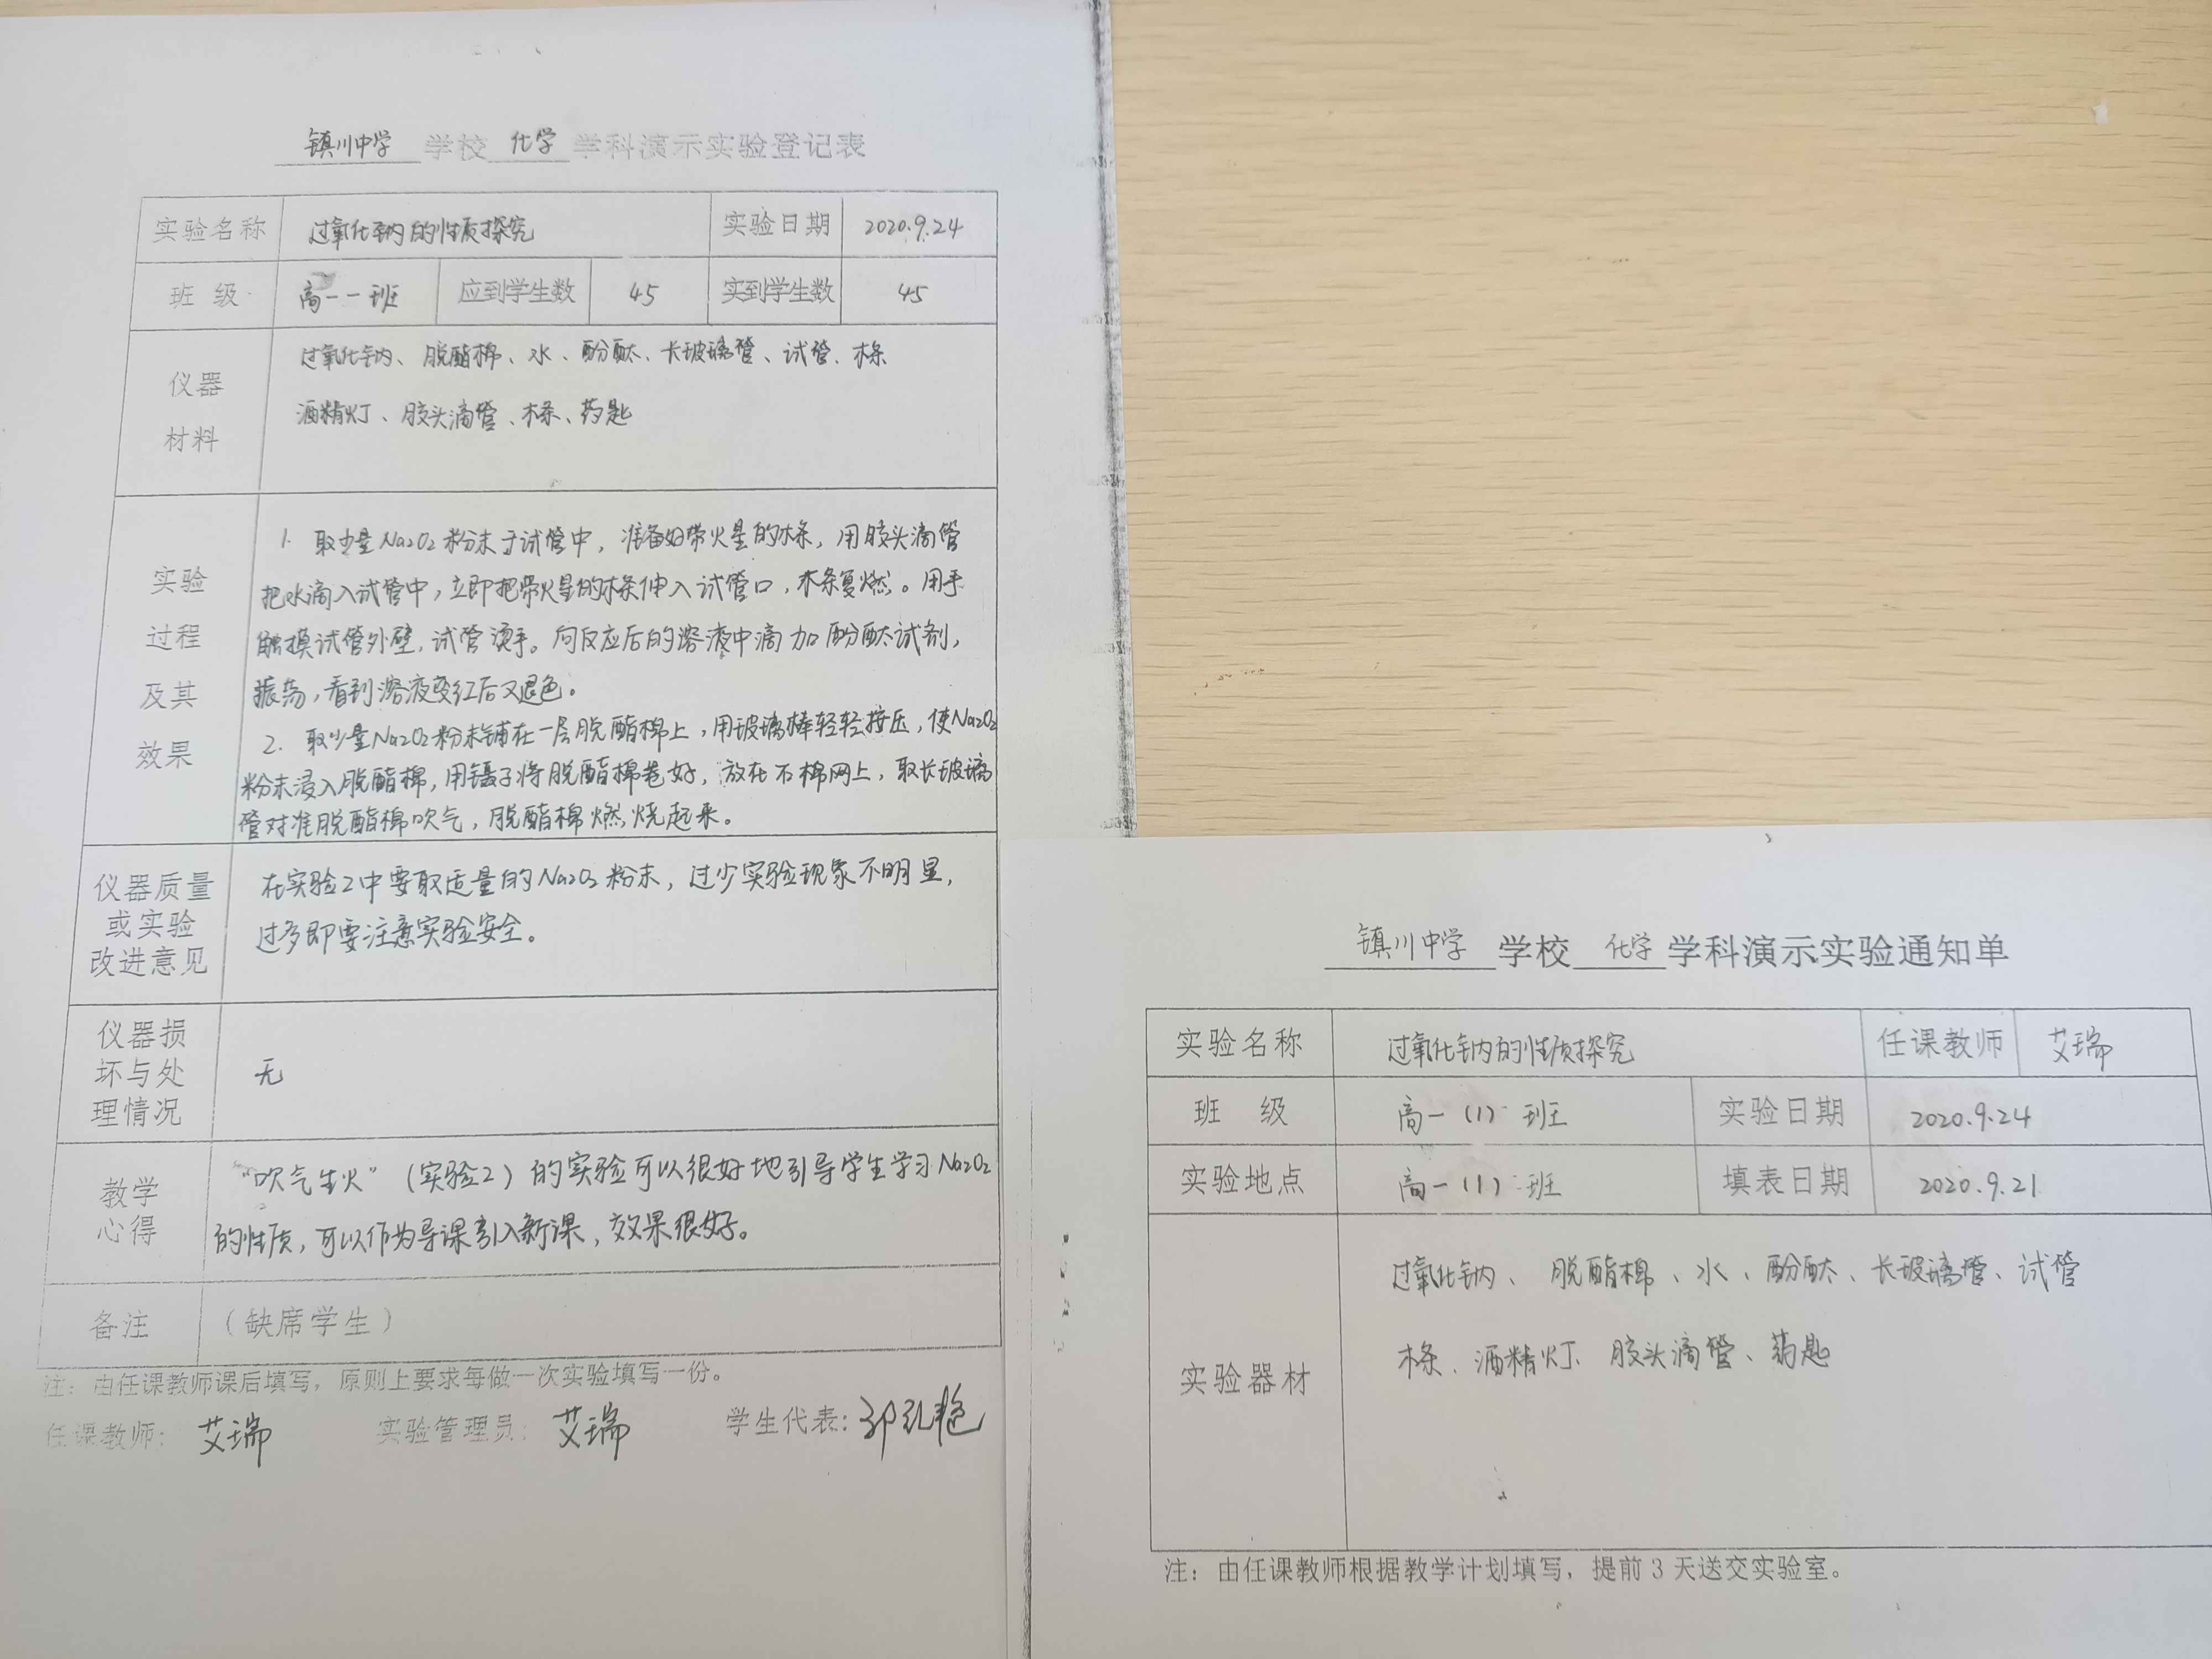 镇川中学 学校 化学 学科演示实验登记表
实验名称 过氧化钠的性质探究 实验日期 2020.9.24
班 级 高一一班 应到学生数 45 实到学生数 45
仪器
材料
过氧化钠、脱酯棉、水、酚酞、长玻璃管、试管、木条
酒精灯、胶头滴管、木条、药匙
实验
过程
及其
效果
1. 取少量Na2O2粉末于试管中，准备好带火星的木条，用胶头滴管
把水滴入试管中，立即把带火星的木条伸入试管口，木条复燃。用手
触摸试管外壁，试管烫手。向反应后的溶液中滴加酚酞试剂，
振荡，看到溶液变红后又退色。
2. 取少量Na2O2粉末铺在一层脱酯棉上，用玻璃棒轻轻按压，使Na2O2
粉末浸入脱酯棉，用镊子将脱酯棉卷好，放在石棉网上，取长玻璃
管对准脱酯棉吹气，脱酯棉燃烧起来。
仪器质量
或实验
改进意见
在实验2中要取适量的Na2O2粉末，过少实验现象不明显，
过多即要注意实验安全。
仪器损
坏与处
理情况
无
教学
心得
“吹气生火”（实验2）的实验可以很好地引导学生学习Na2O2
的性质，可以作为导课引入新课，效果很好。
备注 （缺席学生）
注：由任课教师课后填写，原则上要求每做一次实验填写一份。
任课教师：艾瑞 实验管理员：艾瑞 学生代表：
镇川中学 学校 化学 学科演示实验通知单
实验名称 过氧化钠的性质探究 任课教师 艾瑞
班 级 高一（1）班 实验日期 2020.9.24
实验地点 高一（1）班 填表日期 2020.9.21
实验器材
过氧化钠、脱酯棉、水、酚酞、长玻璃管、试管
木条、酒精灯、胶头滴管、药匙
注：由任课教师根据教学计划填写，提前3天送交实验室。